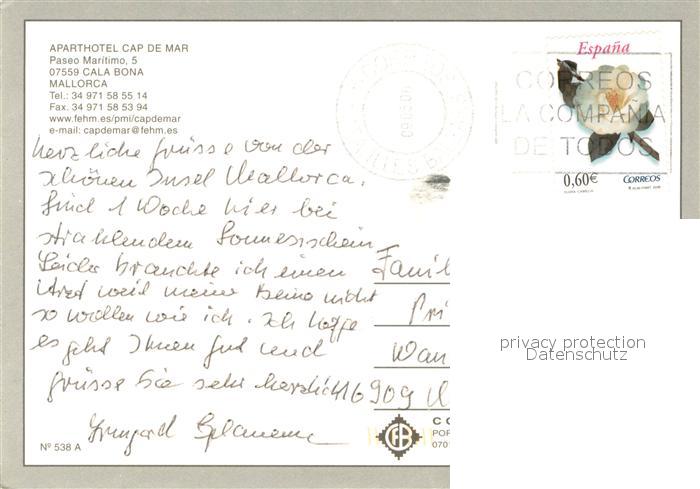 APARTHOTEL CAP DE MAR
Paseo Marítimo, 5
07559 CALA BONA
MALLORCA
Tel.: 34 971 58 55 14
Fax. 34 971 58 53 94
www.fehm.es/pmi/capdemar
e-mail: capdemar@fehm.es
herzliche Grüsse von der
schönen Insel Mallorca.
Sind 1 Woche hier bei
strahlendem Sonnenschein
Leider brauchte ich einen
Arzt weil meine Beine nicht
so wollen wie ich. Ich hoffe
es geht Ihnen gut und
grüsse Sie sehr herzlich
Irmgard
Nº 538 A
España
CORREOS
LA COMPAÑIA
DE TODOS
0,60€
CORREOS
Famil
Pri
Wan
46909
CO
POR
070
privacy protection
Datenschutz